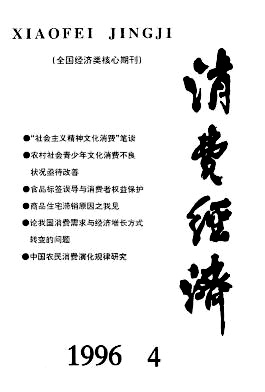 XIAOFEI JINGJI
(全国经济类核心期刊)
消费经济
●“社会主义精神文化消费”笔谈
●农村社会青少年文化消费不良
状况亟待改善
●食品标签误导与消费者权益保护
●商品住宅滞销原因之我见
●论我国消费需求与经济增长方式
转变的问题
●中国农民消费演化规律研究
1996 4